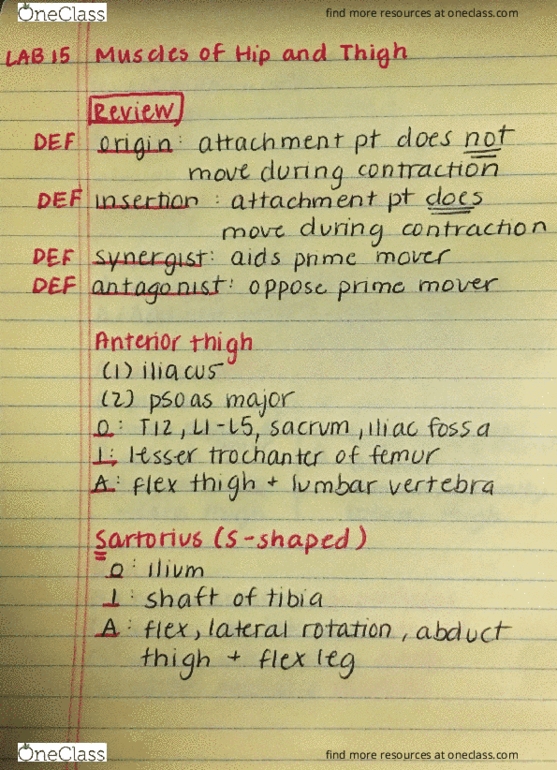 OneClass find more resources at oneclass.com
LAB 15 Muscles of Hip and Thigh
Review
DEF origin: attachment pt does not
move during contraction
DEF insertion: attachment pt does
move during contraction
DEF synergist: aids prime mover
DEF antagonist: oppose prime mover
Anterior thigh
(1) iliacus
(2) psoas major
O: T12, L1-L5, sacrum, iliac fossa
I: lesser trochanter of femur
A: flex thigh + lumbar vertebra
Sartorius (S-shaped)
O: ilium
I: shaft of tibia
A: flex, lateral rotation, abduct
thigh + flex leg
OneClass find more resources at oneclass.com